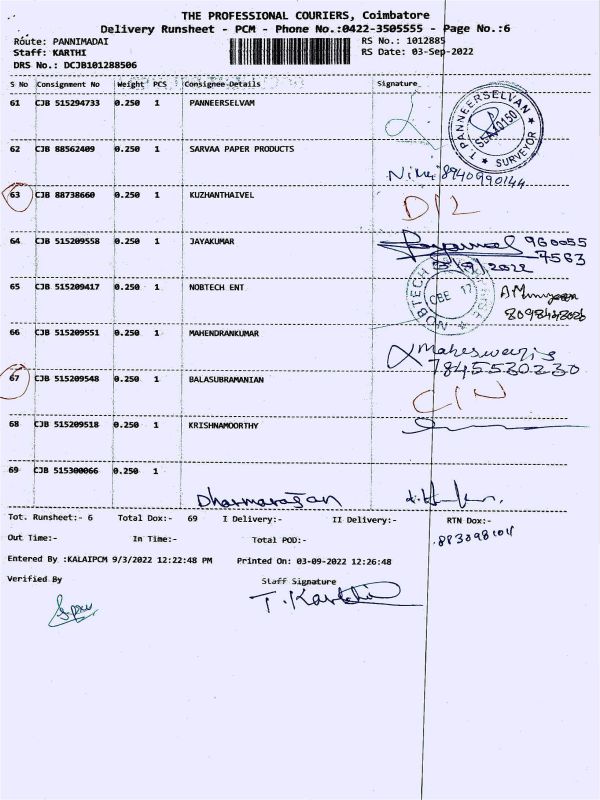 THE PROFESSIONAL COURIERS, Coimbatore
Delivery Runsheet - PCM - Phone No.:0422-3505555 - Page No.:6
Route: PANNIMADAI RS No.: 1012885
Staff: KARTHI RS Date: 03-Sep-2022
DRS No.: DCJB101288506
S No Consignment No Weight PCS Consignee-Details Signature
61 CJB 515294733 0.250 1 PANNEERSELVAM
T. PANNEERSELVAN SURVEYOR
62 CJB 88562409 0.250 1 SARVAA PAPER PRODUCTS
8940990144
63 CJB 88738660 0.250 1 KUZHANTHAIVEL D/L
64 CJB 515209558 0.250 1 JAYAKUMAR 960055
7563
65 CJB 515209417 0.250 1 NOBTECH ENT
NOBTECH CBE 17
66 CJB 515209551 0.250 1 MAHENDRANKUMAR
Maheswari s
7845530230
67 CJB 515209548 0.250 1 BALASUBRAMANIAN C/N
68 CJB 515209518 0.250 1 KRISHNAMOORTHY
69 CJB 515300066 0.250 1
Dharmarajan
Tot. Runsheet:- 6 Total Dox:- 69 I Delivery:- II Delivery:- RTN Dox:-
Out Time:- In Time:- Total POD:-
Entered By :KALAIPCM 9/3/2022 12:22:48 PM Printed On: 03-09-2022 12:26:48
Verified By Staff Signature
T. Karthi